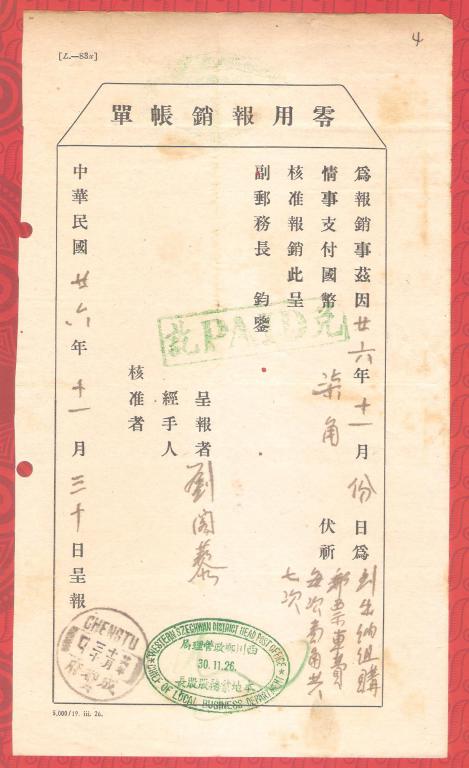 4
[L.—83x]
零用報銷帳單
爲報銷事茲因廿六年十一月份日爲
情事支付國幣柒角伏祈
核准報銷此呈
副郵務長 鈞鑒
兌PAID訖
七次
呈報者
經手人
核准者
中華民國廿六年十一月三十日呈報
CHENGTU
WESTERN SZECHWAN DISTRICT HEAD POST OFFICE
西川郵政管理局
30.11.26.
本地業務股股長
CHIEF OF LOCAL BUSINESS DEPARTMENT
5,000/19. iii. 26.